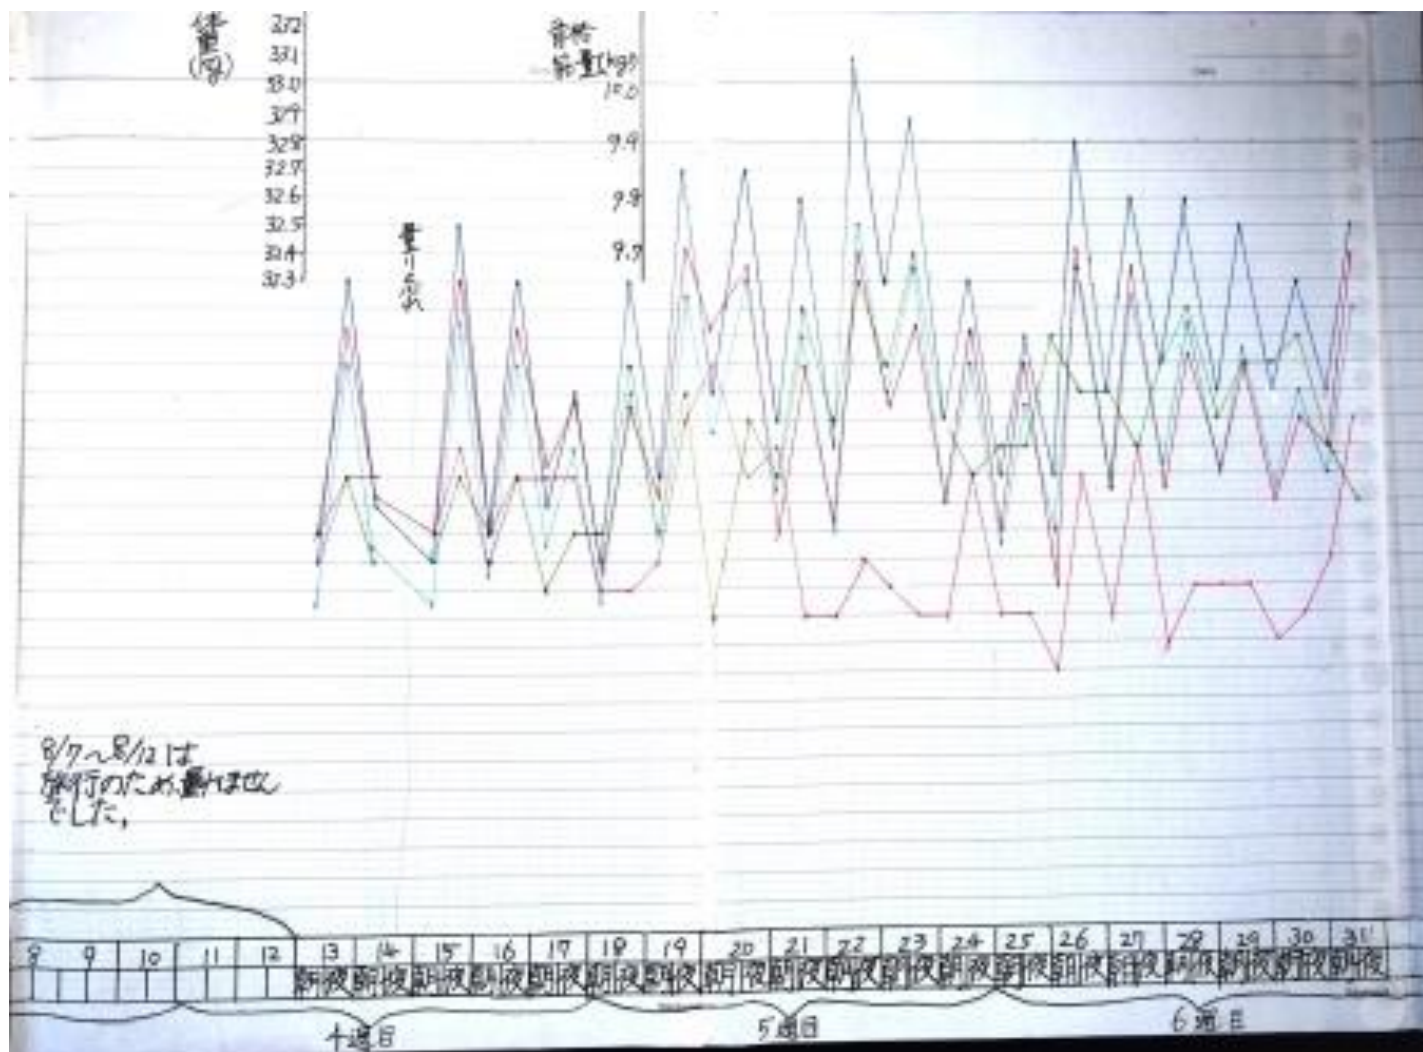 体重
(kg)
33.2
33.1
33.0
32.9
32.8
32.7
32.6
32.5
32.4
32.3
骨格
筋量(kg)
10.0
9.9
9.8
9.7
量り忘れ
8/7～8/12は
旅行のため、量れません
でした。
8 9 10 11 12 13 14 15 16 17 18 19 20 21 22 23 24 25 26 27 28 29 30 31
朝夜 朝夜 朝夜 朝夜 朝夜 朝夜 朝夜 朝夜 朝夜 朝夜 朝夜 朝夜 朝夜 朝夜 朝夜 朝夜 朝夜 朝夜 朝夜
4週目 5週目 6週目